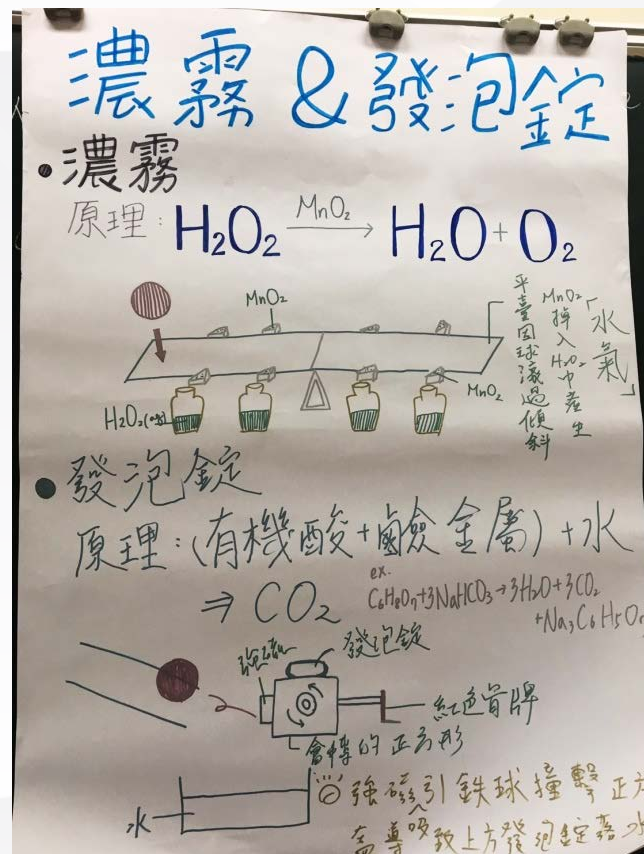 濃霧 & 發泡錠
• 濃霧
原理: H₂O₂ MnO₂→ H₂O + O₂
MnO₂
H₂O₂(aq)
MnO₂
平臺因球滾過傾斜
MnO₂掉入H₂O₂中產生
「水氣」
• 發泡錠
原理:(有機酸+鹼金屬)+水
⇒ CO₂
ex.
C₆H₈O₇+3NaHCO₃→3H₂O+3CO₂
+Na₃C₆H₅O₇
強磁
發泡錠
紅色骨牌
會轉的正方形
水
強磁吸引鉄球撞擊正方
會導致上方發泡錠落水